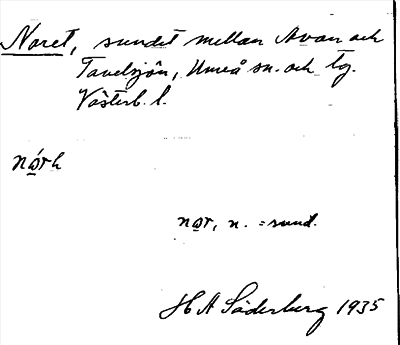 Noret, sundet mellan Avan och
Tavelsjön, Umeå sn. och tg.
Västerb. l.
når, n. = sund.
H A Söderberg 1935